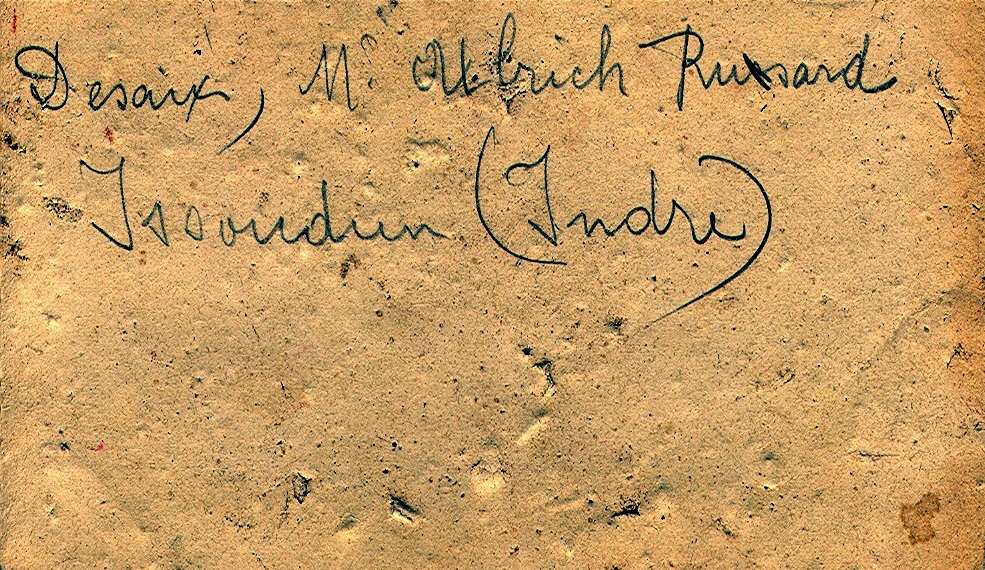 Desaix, M. Ulbrich Russard
Issoudun (Indre)